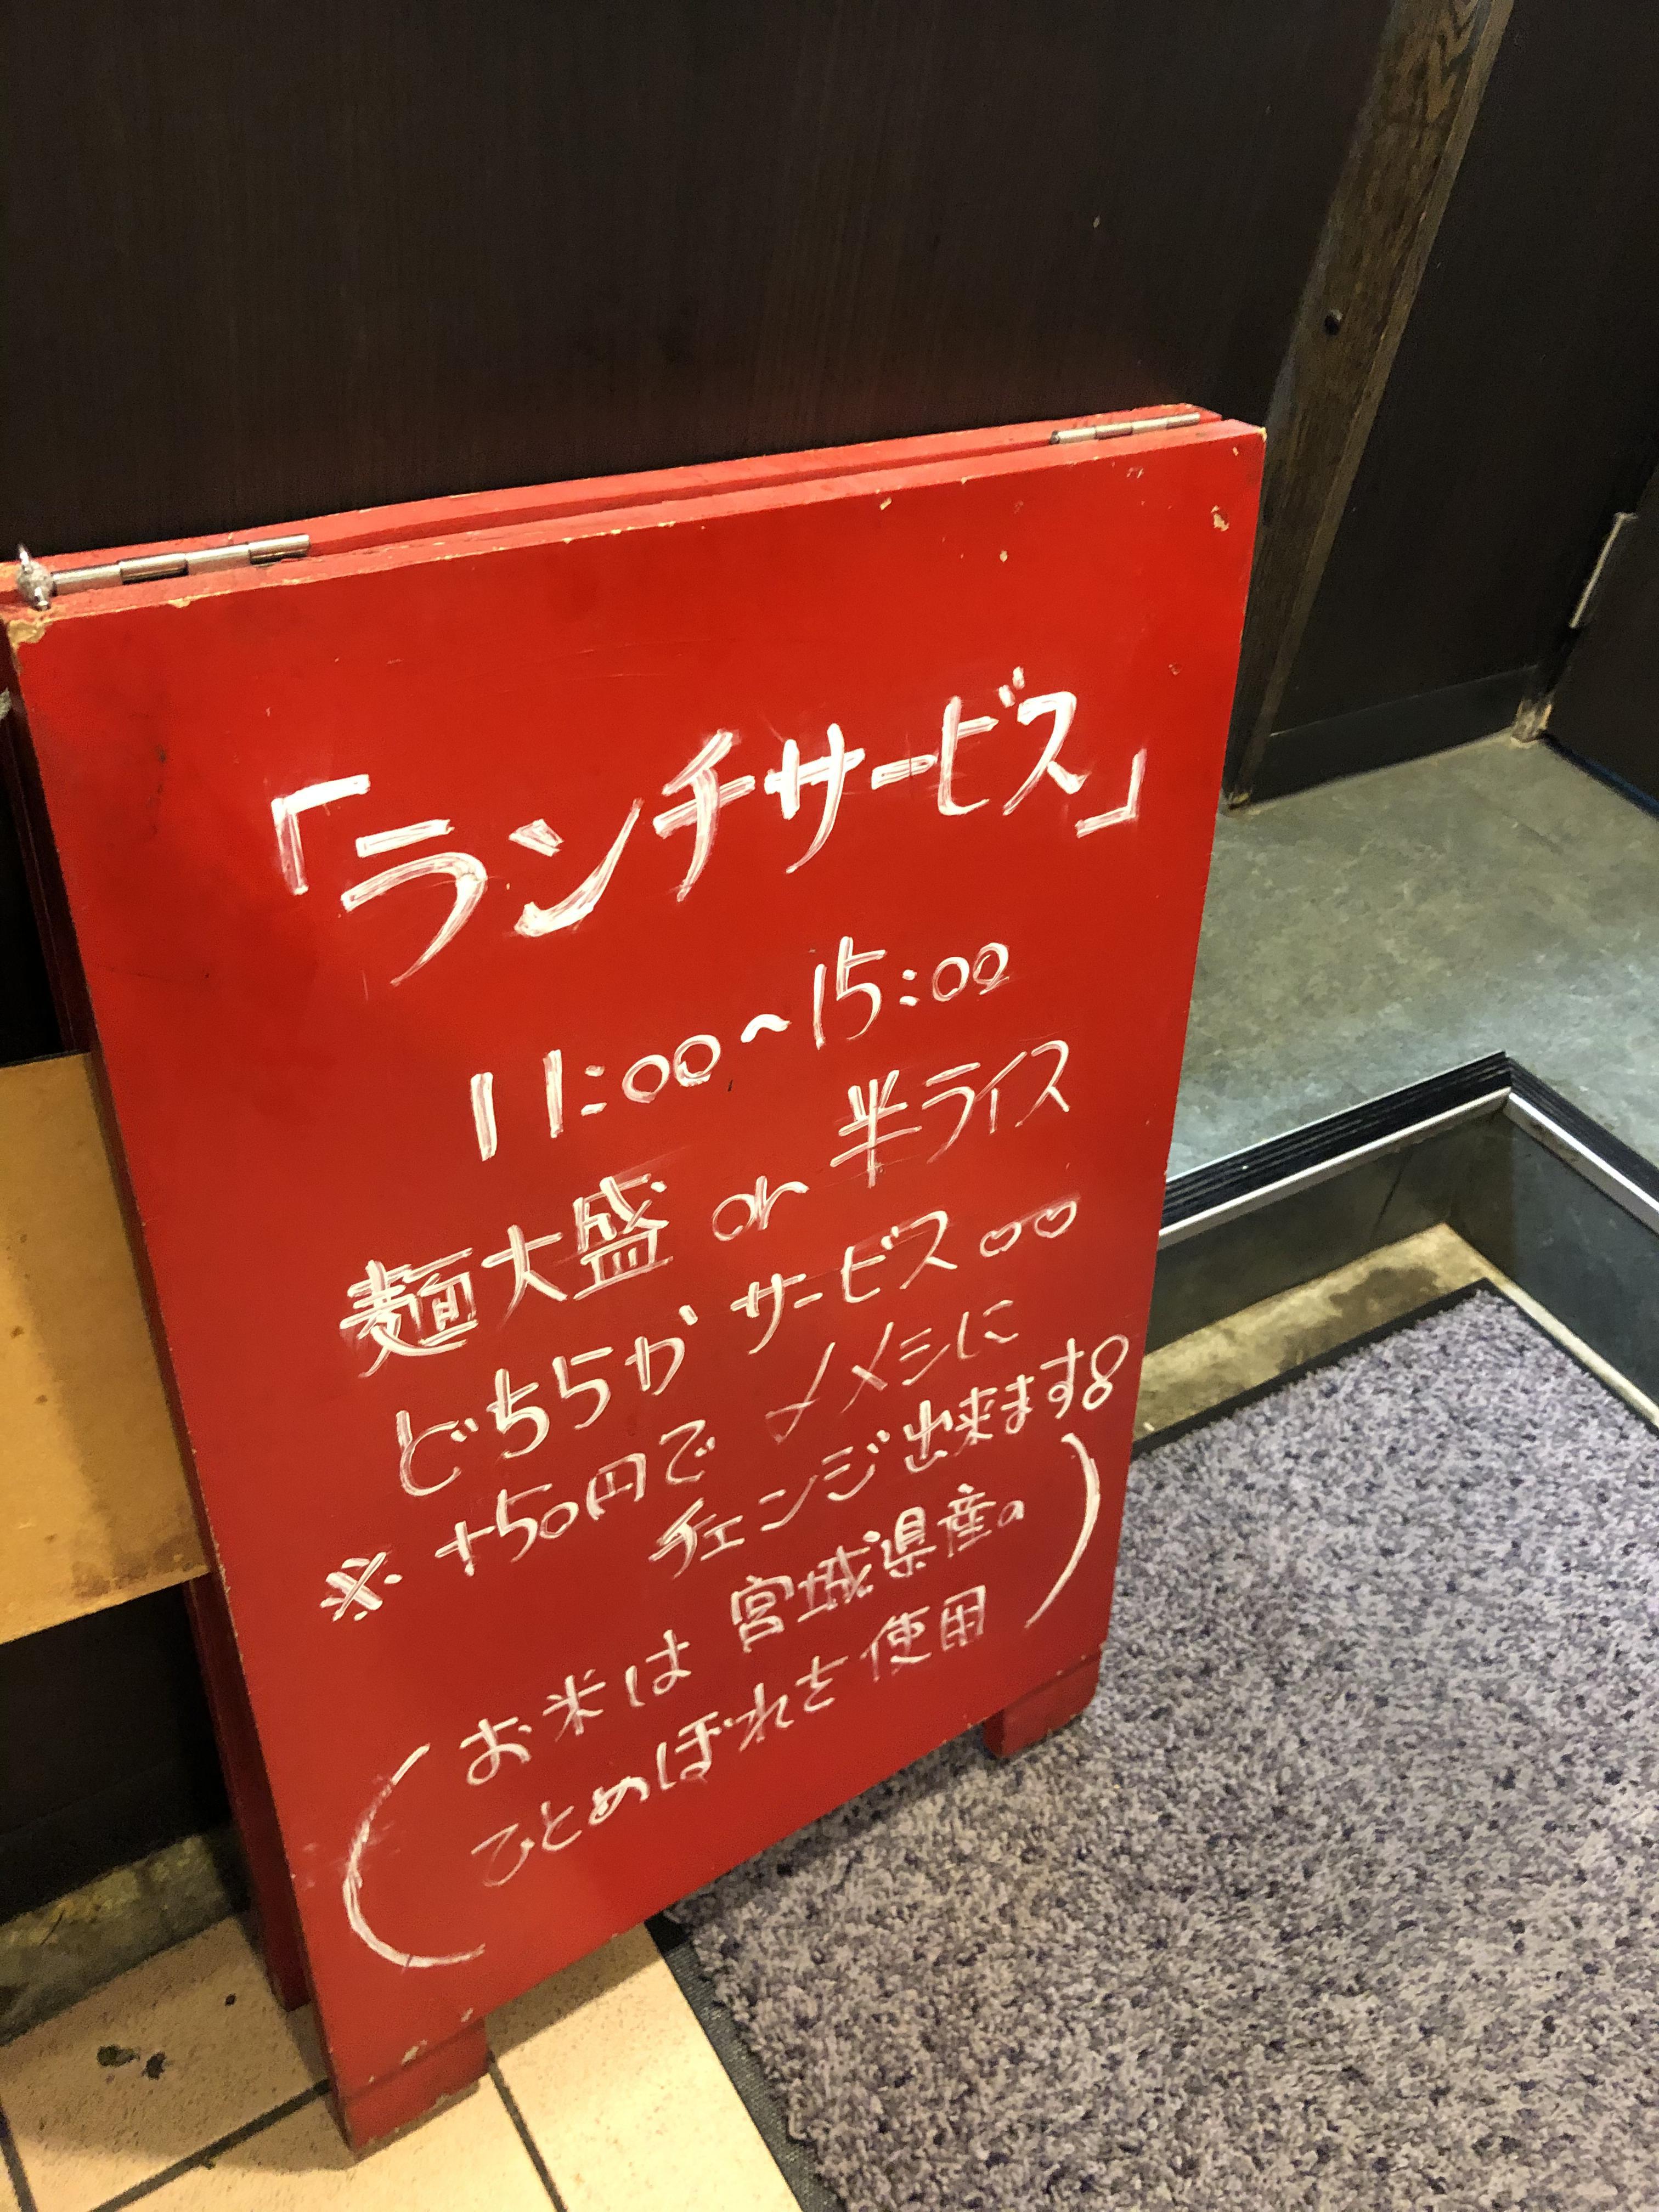 「ランチサービス」
11:00～15:00
麺大盛 or 半ライス
どちらかサービス。。
※ +50円で メメシに
チェンジ出来ます。
お米は 宮城県産の
ひとめぼれを使用